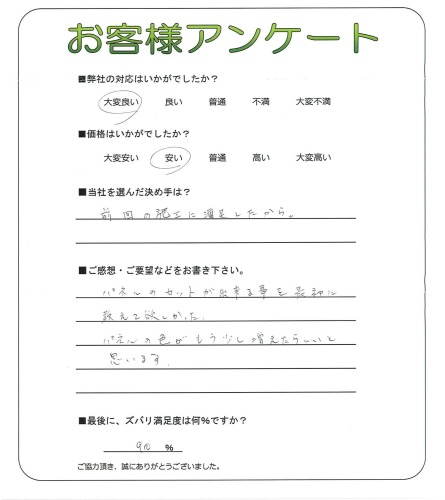 お客様アンケート
■弊社の対応はいかがでしたか?
大変良い 良い 普通 不満 大変不満
■価格はいかがでしたか?
大変安い 安い 普通 高い 大変高い
■当社を選んだ決め手は?
前回の施工に満足したから。
■ご感想・ご要望などをお書き下さい。
パネルのカットが出来る事を最初に
教えて欲しかった。
パネルの色がもう少し増えたらいいと
思います。
■最後に、ズバリ満足度は何%ですか?
90 %
ご協力頂き、誠にありがとうございました。